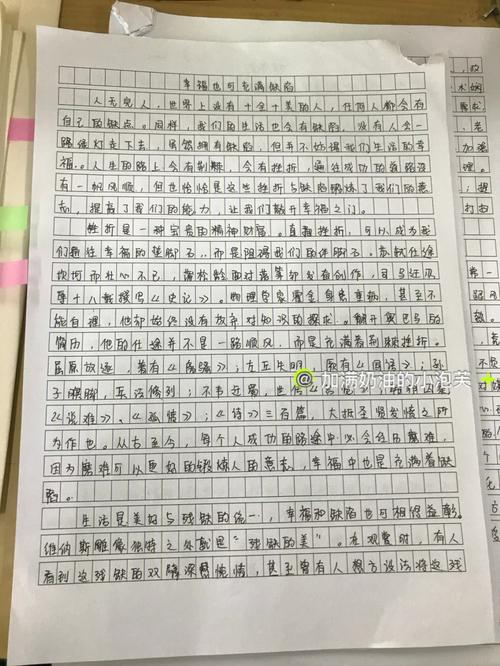 幸福也可充满缺陷
人无完人,世界上没有十全十美的人,任何人都会有
自己的缺点。同样,我们的生活也会有缺陷,没有人会一
路绿灯走下去,虽然拥有缺陷,但并不妨碍我们生活的幸
福。人生的路上会有荆棘,会有挫折,通往成功的道路没
有一帆风顺,但也恰恰是这些挫折与缺陷锻炼了我们的意
志,提高了我们的能力,让我们敲开幸福之门。
挫折是一种宝贵的精神财富。直面挫折,可以成为我
们通往幸福的垫脚石,而是阻碍我们的绊脚石。苏轼仕途
坎坷而壮心不已,蒲松龄面对落第却发奋创作,司马迁汲
墨十八载撰写《史记》。物理学家霍金身患重病,甚至不
能自理,他却始终没有放弃对知识的探求。翻开奥巴马的
简历,他的仕途并不是一路顺风,而是充满着荆棘挫折。
屈原放逐,著有《离骚》;左丘失明,厥有《国语》;孙
子膑脚,兵法修列;不韦迁蜀,世传
《说难》、《孤愤》;《诗》三百篇,大抵圣贤发愤之所
为作也。从古至今,每个人成功的路途中必会经历磨难,
因为磨难可以更好的锻炼人的意志,幸福中也是充满着缺
陷。
生活是美好与残缺的统一,幸福和缺陷也可相得益彰。
维纳斯雕像独特之处就是“残缺的美”。在观赏时,有人
看到这残缺的双臂深感惋惜,甚至曾有人想方设法将这残
@加满奶油的小泡芙